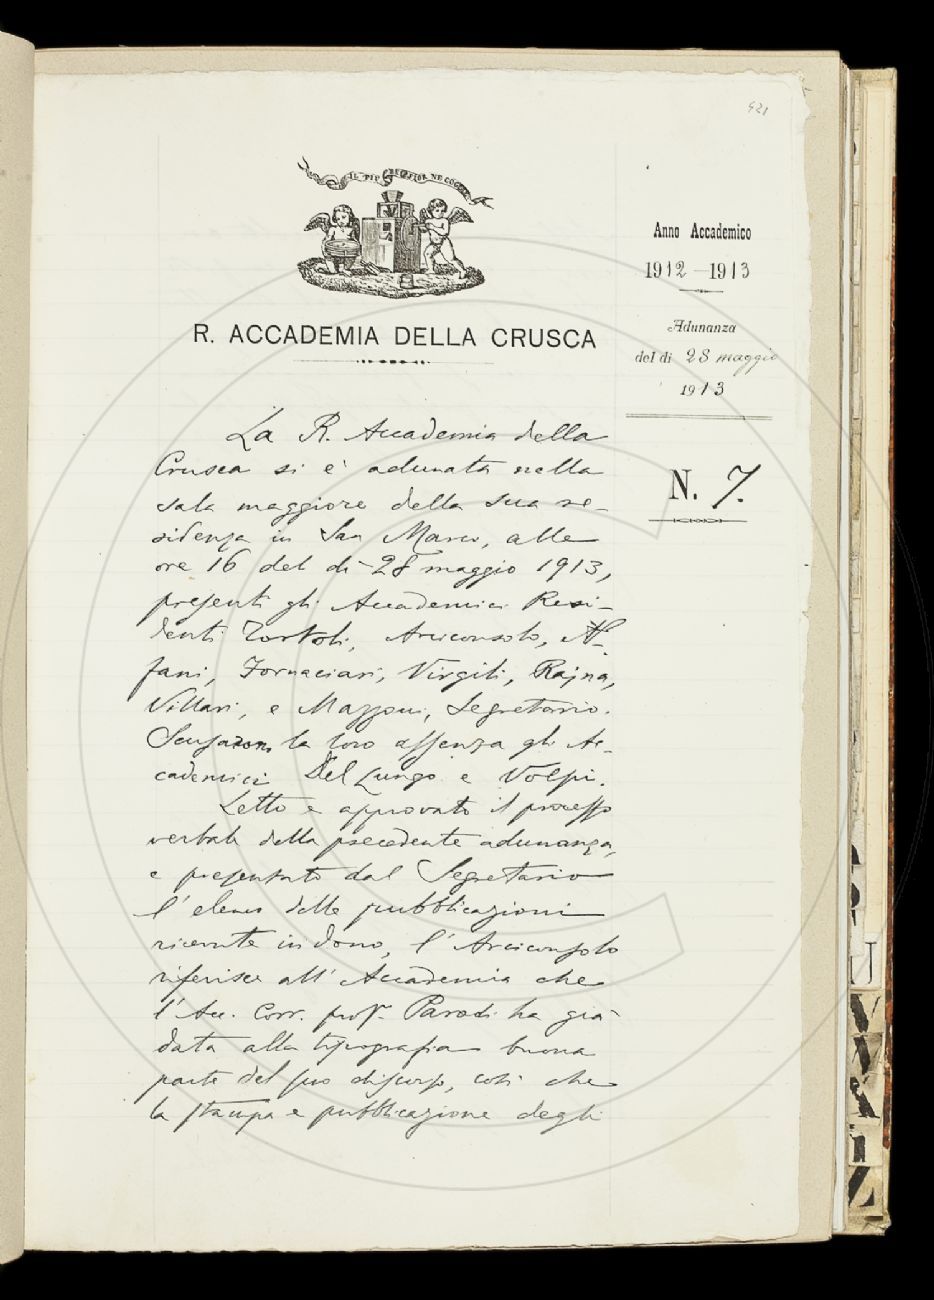 421
IL PIÙ BEL FIOR NE COGLIE
R. ACCADEMIA DELLA CRUSCA
Anno Accademico
1912-1913
Adunanza
del dì 28 maggio
1913
N. 7.
La R. Accademia della
Crusca si è adunata nella
sala maggiore della sua re-
sidenza in San Marco, alle
ore 16 del dì 28 maggio 1913,
presenti gli Accademici Resi-
denti Tortoli, Arciconsolo, Al-
fani, Fornaciari, Virgili, Rajna,
Villari, e Mazzoni, Segretario.
Scusarono la loro assenza gli Ac-
cademici Del Lungo e Volpi.
Letto e approvato il processo
verbale della precedente adunanza,
e presentato dal Segretario
l'elenco delle pubblicazioni
ricevute in dono, l'Arciconsolo
riferisce all'Accademia che
l'Acc. Corr. prof. Parodi ha già
data alla tipografia buona
parte del suo discorso, così che
la stampa e pubblicazione degli